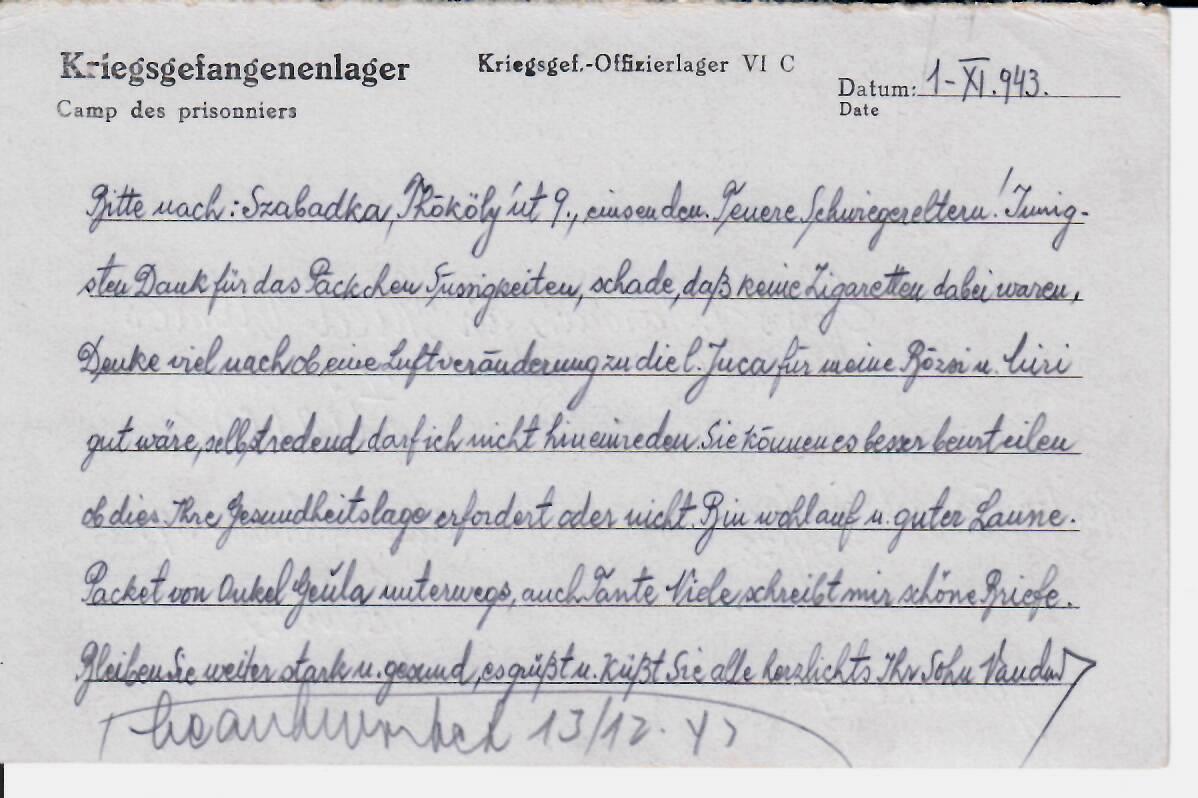 Kriegsgefangenenlager
Camp des prisonniers
Kriegsgef.-Offizierlager VI C
Datum: 1-XI.943.
Date
Bitte nach: Szabadka, Thököly út 9., einsenden. Teuere Schwiegereltern! Innig-
sten Dank für das Päckchen Süssigkeiten, schade, daß keine Zigaretten dabei waren.
Denke viel nach ob eine Luftveränderung zu die l. Juca für meine Rózsi u. Ciri
gut wäre, selbstredend darf ich nicht hineinreden. Sie können es besser beurteilen
ob dies Ihre Gesundheitslage erfordert oder nicht. Bin wohlauf u. guter Laune.
Packet von Onkel Geúla unterwegs, auch Tante Viele schreibt mir schöne Briefe.
Bleiben Sie weiter stark u. gesund, es grüßt u. küßt Sie alle herzlichts Ihr Sohn
13/12. 43